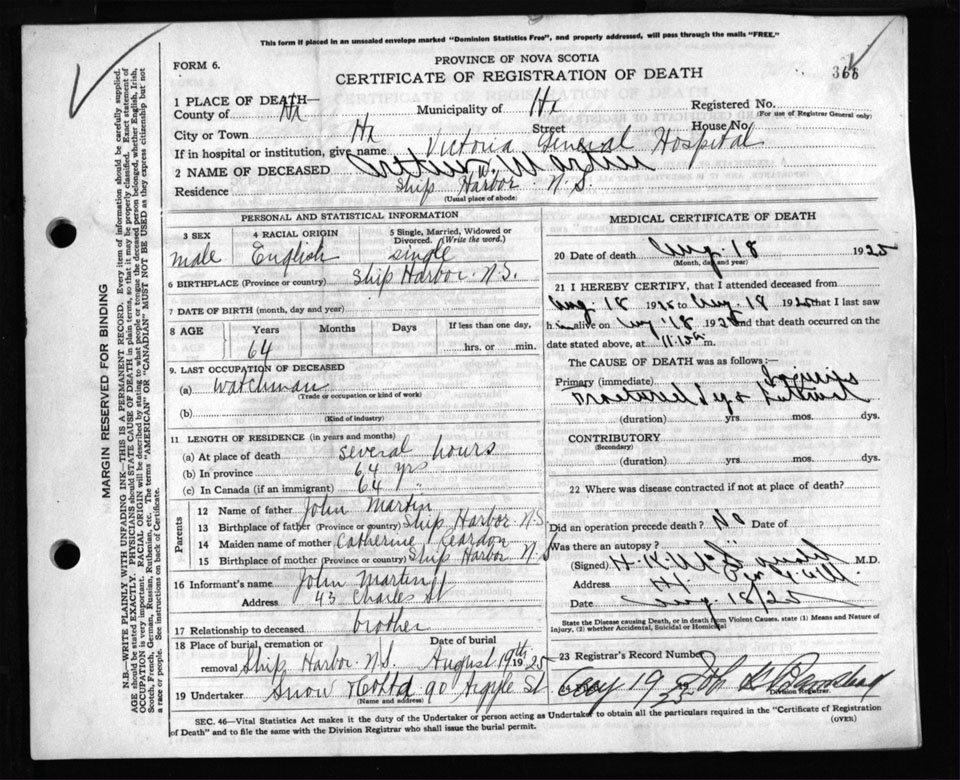 This form if placed in an unsealed envelope marked "Dominion Statistics Free", and properly addressed, will pass through the mails "FREE."
FORM 6.
PROVINCE OF NOVA SCOTIA
CERTIFICATE OF REGISTRATION OF DEATH
366
1 PLACE OF DEATH—
County of Hx Municipality of Hx Registered No.
(For use of Registrar General only)
City or Town Hx Street House No.
If in hospital or institution, give name Victoria General Hospital
2 NAME OF DECEASED Arthur W. Martin
Residence Ship Harbor N.S.
(Usual place of abode)
PERSONAL AND STATISTICAL INFORMATION
3 SEX 4 RACIAL ORIGIN 5 Single, Married, Widowed or Divorced. (Write the word.)
male English single
6 BIRTHPLACE (Province or country) Ship Harbor N.S.
7 DATE OF BIRTH (month, day and year)
8 AGE Years Months Days If less than one day,
64 hrs. or min.
9. LAST OCCUPATION OF DECEASED
(a) Watchman
(Trade or occupation or kind of work)
(b)
(Kind of industry)
11 LENGTH OF RESIDENCE (in years and months)
(a) At place of death several hours
(b) In province 64 yrs
(c) In Canada (if an immigrant) 64 "
Parents
12 Name of father John Martin
13 Birthplace of father (Province or country) Ship Harbor N.S.
14 Maiden name of mother Catherine Reardon
15 Birthplace of mother (Province or country) Ship Harbor N S
16 Informant's name John Martin
Address 43 Charles St
17 Relationship to deceased brother
18 Place of burial, cremation or removal Ship Harbor N.S. Date of burial August 19th 1925
19 Undertaker Snow & Co Ltd 90 Argyle St
(Name and address)
MEDICAL CERTIFICATE OF DEATH
20 Date of death Aug. 18 1925
(Month, day and year)
21 I HEREBY CERTIFY, that I attended deceased from
Aug. 18 1925 to Aug. 18 1925 that I last saw
him alive on Aug 18 1925 and that death occurred on the
date stated above, at 11.15 m.
The CAUSE OF DEATH was as follows:—
Primary (immediate)
Fractured
(duration) yrs. mos. dys.
CONTRIBUTORY
(Secondary)
(duration) yrs mos. dys.
22 Where was disease contracted if not at place of death?
Did an operation precede death? No Date of
Was there an autopsy?
(Signed) H. K. M.D.
Address Hx.
Date Aug. 18/25
State the Disease causing Death, or in death from Violent Causes, state (1) Means and Nature of Injury, (2) whether Accidental, Suicidal or Homicidal
23 Registrar's Record Number
Aug 19
Division Registrar.
SEC. 46—Vital Statistics Act makes it the duty of the Undertaker or person acting as Undertaker to obtain all the particulars required in the "Certificate of Registration
of Death" and to file the same with the Division Registrar who shall issue the burial permit.
(OVER)
MARGIN RESERVED FOR BINDING
N.B.—WRITE PLAINLY WITH UNFADING INK—THIS IS A PERMANENT RECORD. Every item of information should be carefully supplied.
AGE should be stated EXACTLY. PHYSICIANS should STATE CAUSE OF DEATH in plain terms, so that it may be properly classified. Exact statement of
OCCUPATION is very important. RACIAL ORIGIN will be described by stating to what people or tongue the deceased person belonged, whether English, Irish,
Scotch, French, German, Russian, Ruthenian, etc. The terms "AMERICAN" or "CANADIAN" MUST NOT BE USED as they express citizenship but not
a race or people. See instructions on back of Certificate.